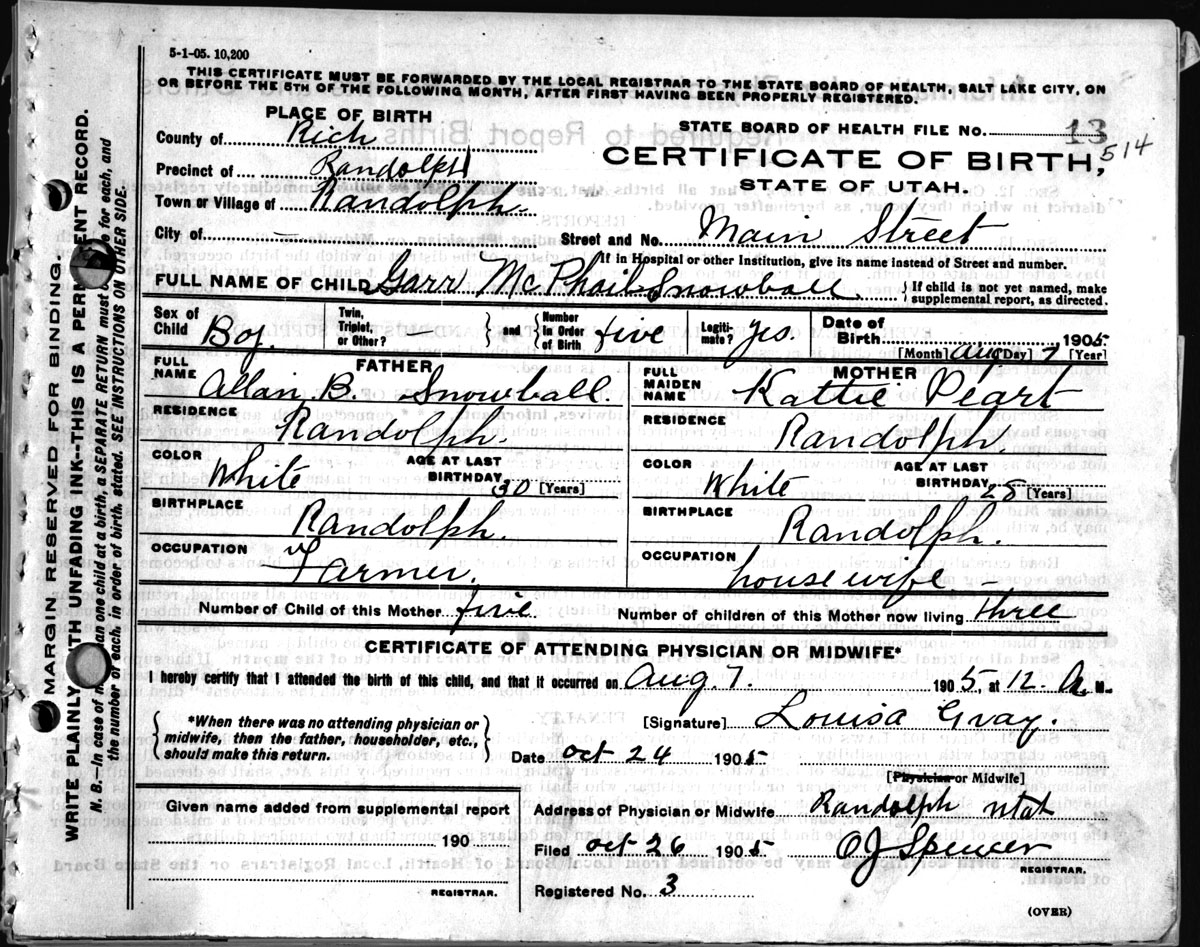 5-1-05. 10,200
THIS CERTIFICATE MUST BE FORWARDED BY THE LOCAL REGISTRAR TO THE STATE BOARD OF HEALTH, SALT LAKE CITY, ON
OR BEFORE THE 5TH OF THE FOLLOWING MONTH, AFTER FIRST HAVING BEEN PROPERLY REGISTERED.
PLACE OF BIRTH
County of Rich
Precinct of Randolph
Town or Village of Randolph
City of —
STATE BOARD OF HEALTH FILE NO. 13
514
CERTIFICATE OF BIRTH,
STATE OF UTAH.
Street and No. Main Street
If in Hospital or other Institution, give its name instead of Street and number.
FULL NAME OF CHILD Garr McPhail Snowball { If child is not yet named, make supplemental report, as directed.
Sex of Child Boy. Twin, Triplet, or Other? — } and { Number in Order of Birth five Legitimate? yes. Date of Birth 1905
[Month] Aug [Day] 7 [Year]
FATHER
FULL NAME Allan B. Snowball.
RESIDENCE Randolph.
COLOR White AGE AT LAST BIRTHDAY 30 [Years]
BIRTHPLACE Randolph.
OCCUPATION Farmer.
MOTHER
FULL MAIDEN NAME Kattie Peart
RESIDENCE Randolph.
COLOR White AGE AT LAST BIRTHDAY 28 [Years]
BIRTHPLACE Randolph.
OCCUPATION housewife
Number of Child of this Mother five Number of children of this Mother now living three
CERTIFICATE OF ATTENDING PHYSICIAN OR MIDWIFE*
I hereby certify that I attended the birth of this child, and that it occurred on Aug. 7. 1905, at 12. A M.
{ *When there was no attending physician or midwife, then the father, householder, etc., should make this return. }
[Signature] Louisa Gray.
Date Oct 24 1905
[Physician or Midwife]
Given name added from supplemental report
190
REGISTRAR.
Address of Physician or Midwife Randolph Utah
Filed Oct 26 1905 O J Spencer
REGISTRAR.
Registered No. 3
(OVER)
MARGIN RESERVED FOR BINDING
WRITE PLAINLY WITH UNFADING INK--THIS IS A PERMANENT RECORD.
N. B.—In case of more than one child at a birth, a SEPARATE RETURN must be made for each, and
the number of each, in order of birth, stated. SEE INSTRUCTIONS ON OTHER SIDE.